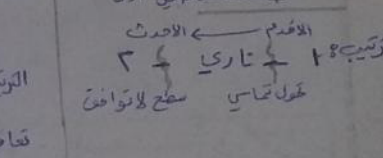 الاقدم ← الاحدث
ترتيب: ١ - ناري - ٢
تحول تماسي سطح لاتوافق